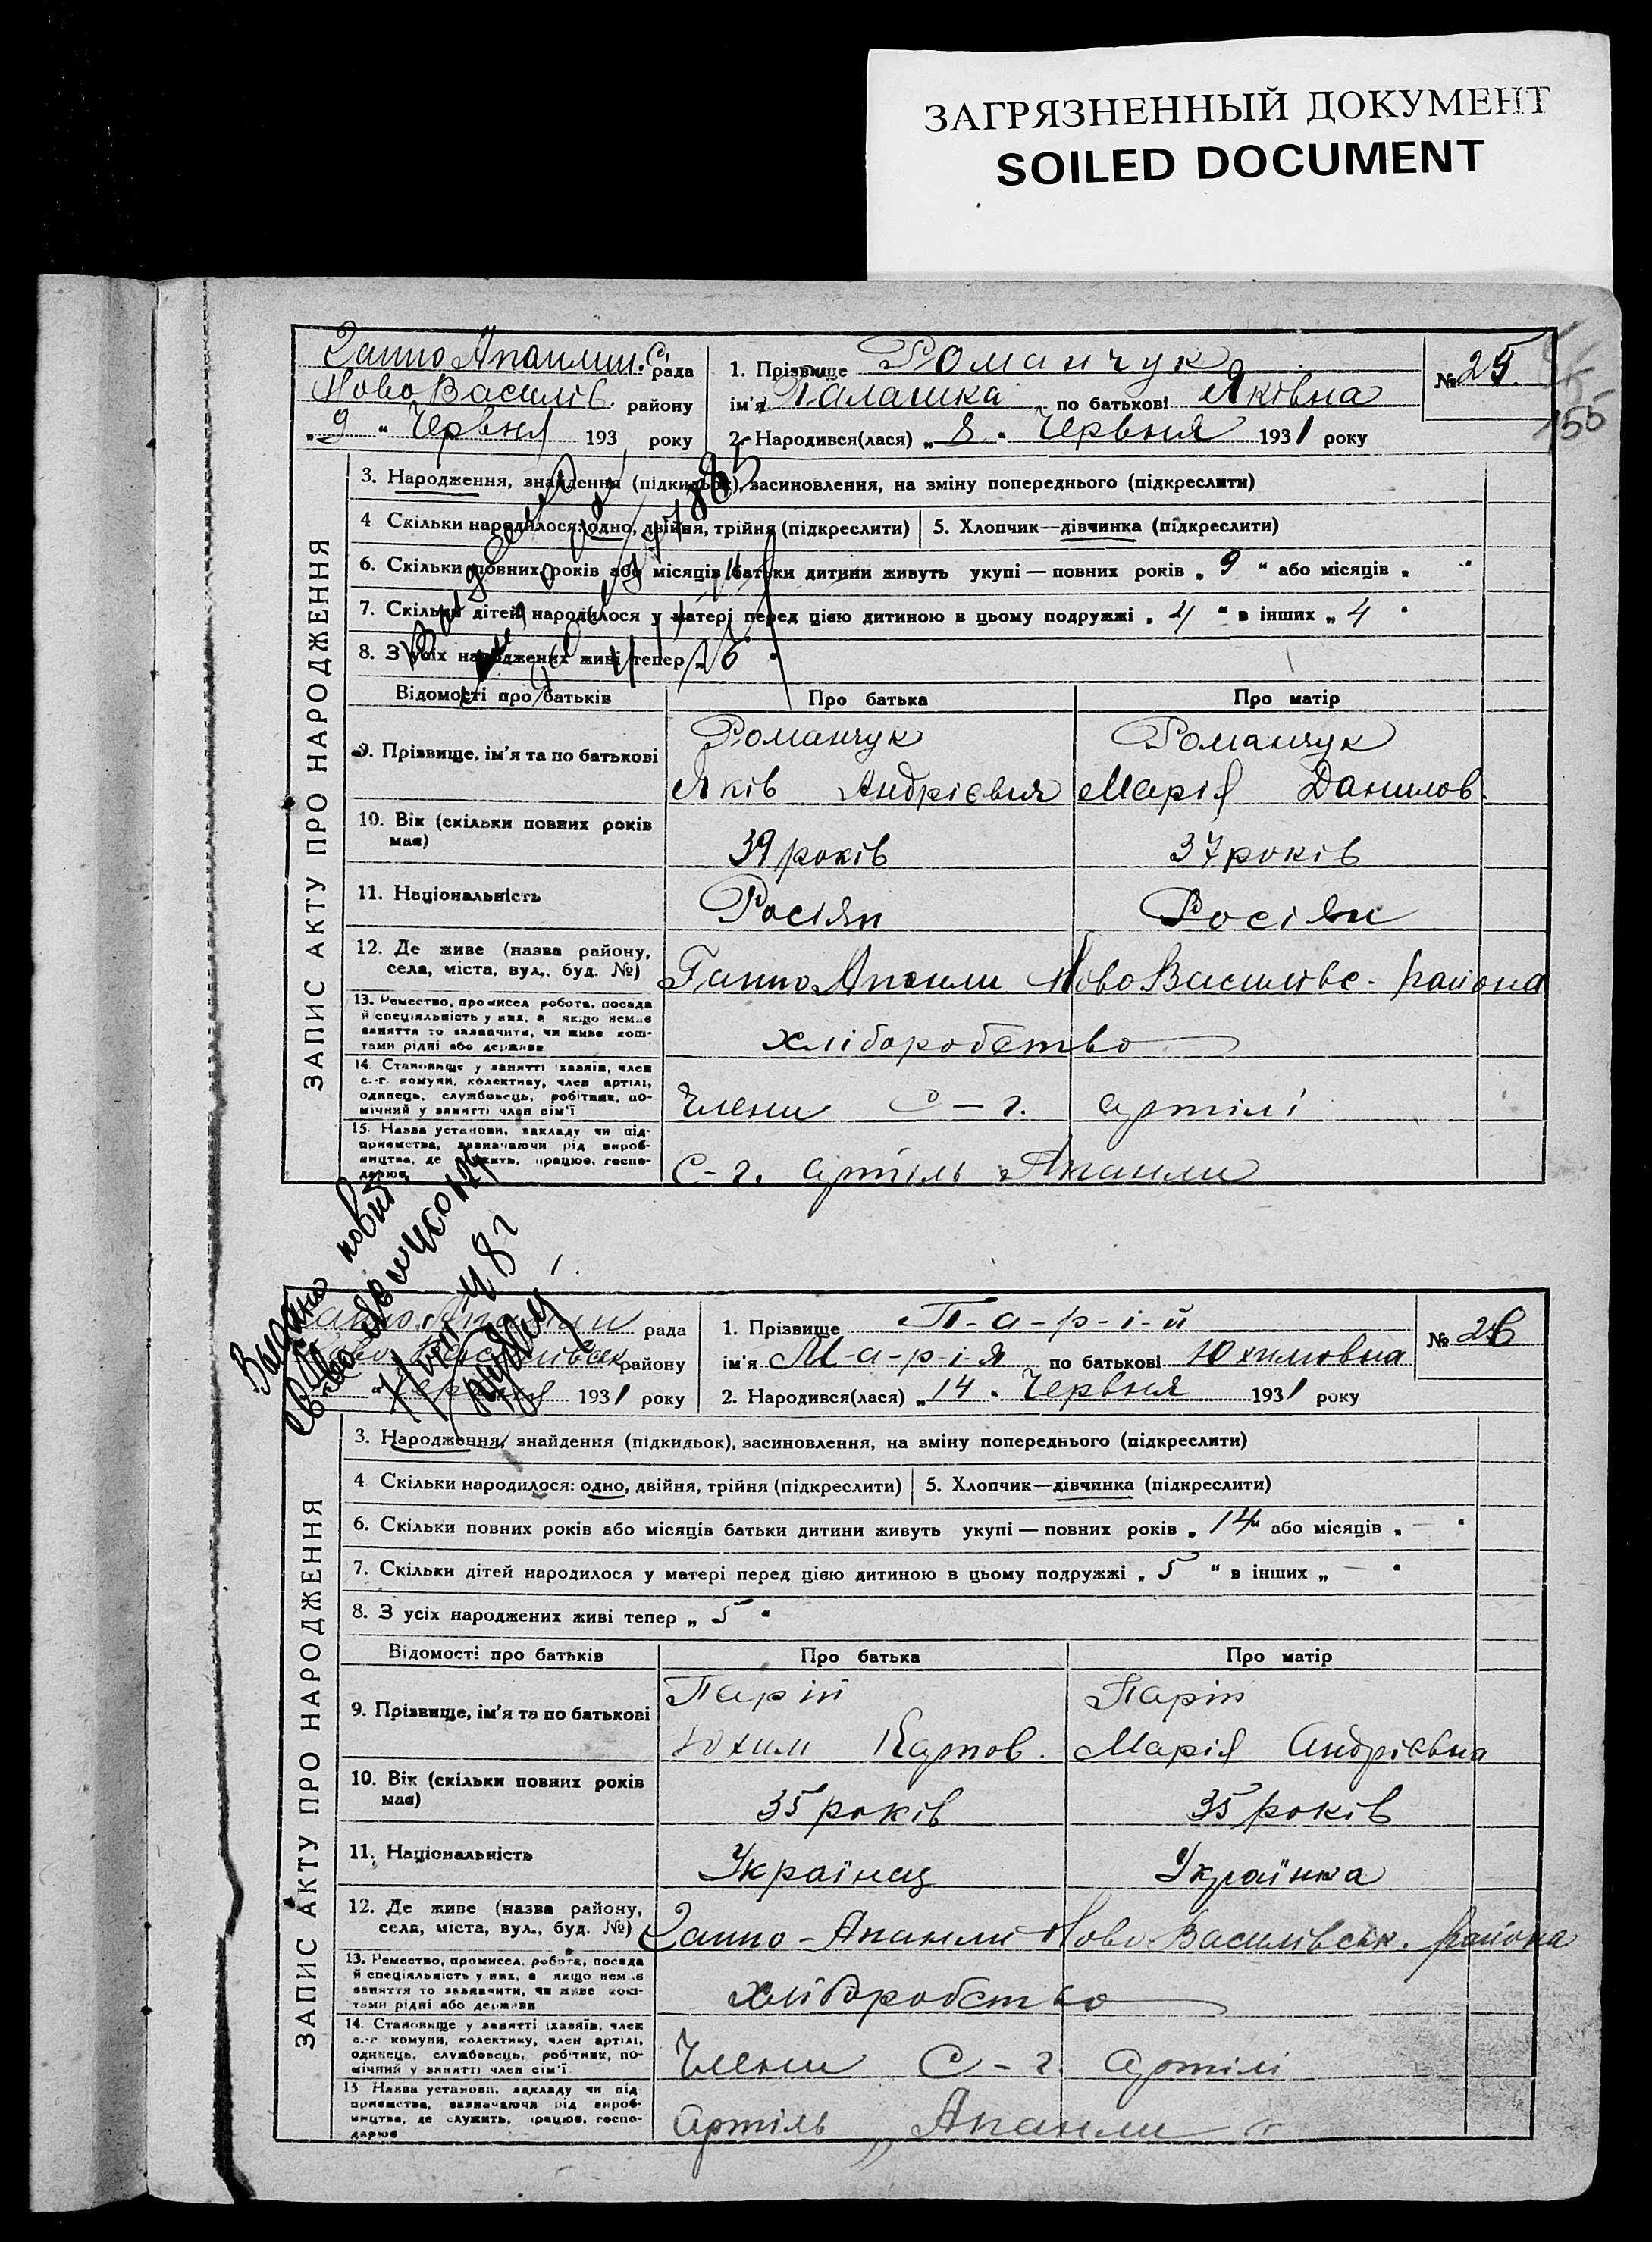 ЗАГРЯЗНЕННЫЙ ДОКУМЕНТ
SOILED DOCUMENT
Ганно Апанлин. с. рада
Ново Василів. району
„9“ Червня 193 року
1. Прізвище Романчук
ім'я Палашка по батькові Яківна
2. Народився(лася) „8“ Червня 1931 року
№ 25.
155
ЗАПИС АКТУ ПРО НАРОДЖЕННЯ
3. Народження, знайдення (підкидьок), засиновлення, на зміну попереднього (підкреслити)
4 Скільки народилося: одно, двійня, трійня (підкреслити) 5. Хлопчик—дівчинка (підкреслити)
6. Скільки повних років або місяців батьки дитини живуть укупі — повних років „9“ або місяців „ “
7. Скільки дітей народилося у матері перед цією дитиною в цьому подружжі „4“ в інших „4“
8. З усіх народжених живі тепер „6“
Відомості про батьків Про батька Про матір
9. Прізвище, ім'я та по батькові
Романчук Романчук
Яків Андрієвич Марія Данилов.
10. Вік (скільки повних років має)
39 років 37 років
11. Національність Росіян Росіян
12. Де живе (назва району, села, міста, вул., буд. №)
Ганно Апанли Ново Василівс. района
13. Ремество, промисел робота, посада й спеціяльність у них, а якщо немає заняття то зазначити, чи живе коштами рідні або держави
хліборобство
14. Становище у занятті (хазяїн, член с.-г. комуни, колективу, член артілі, одинець, службовець, робітник, помічний у занятті член сім'ї
Члени с-г. артілі
15. Назва установи, закладу чи підприємства, зазначаючи рід виробництва, де служить, працює, господарює
С-г. артіль Апанли
Выдано повт.
Ганно Апанли рада
Ново Василівськ району
Червня 1931 року
1. Прізвище П-а-р-і-й
ім'я М-а-р-і-я по батькові Юхимовна
2. Народився(лася) „14“ Червня 1931 року
№ 26
ЗАПИС АКТУ ПРО НАРОДЖЕННЯ
3. Народження, знайдення (підкидьок), засиновлення, на зміну попереднього (підкреслити)
4 Скільки народилося: одно, двійня, трійня (підкреслити) 5. Хлопчик—дівчинка (підкреслити)
6. Скільки повних років або місяців батьки дитини живуть укупі — повних років „14“ або місяців „—“
7. Скільки дітей народилося у матері перед цією дитиною в цьому подружжі „5“ в інших „—“
8. З усіх народжених живі тепер „5“
Відомості про батьків Про батька Про матір
9. Прізвище, ім'я та по батькові
Парій Парій
Юхим Карпов. Марія Андрієвна
10. Вік (скільки повних років має)
35 років 35 років
11. Національність Українец Українка
12. Де живе (назва району, села, міста, вул., буд. №)
Ганно-Апанли Ново Василівськ. района
13. Ремество, промисел, робота, посада й спеціяльність у них, а якщо немає заняття то зазначити, чи живе коштами рідні або держави
хліборобство
14. Становище у занятті (хазяїн, член с.-г комуни, колективу, член артілі, одинець, службовець, робітник, помічний у занятті член сім'ї
Члени С-г. артілі
15 Назва установи, закладу чи підприємства, зазначаючи рід виробництва, де служить, працює, господарює
Артіль „Апанли“